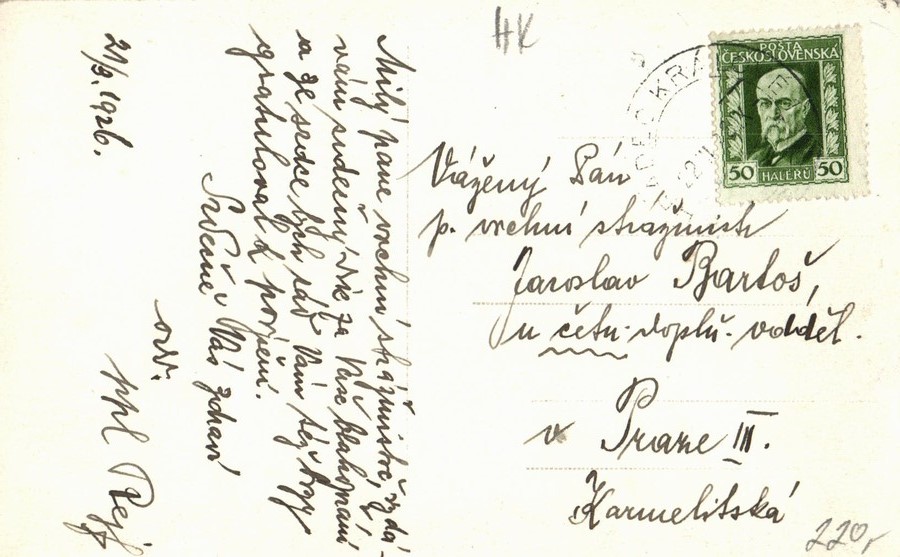 HK
POŠTA
ČESKOSLOVENSKÁ
50 HALÉŘŮ 50
HRADEC KRÁL
Vážený Pán
p. vrchní strážmistr
Jaroslav Bartoš,
u četn. doplň. odděl.
v Praze III.
Karmelitská
220,-
21/9. 1926.
Milý pane vrchní strážmistře,
vám srdečný dík za Vaše blahopřání
a ze srdce bych rád Vám též brzy
gratuloval k povýšení.
Srdečně Vás zdraví
ppl Rejf